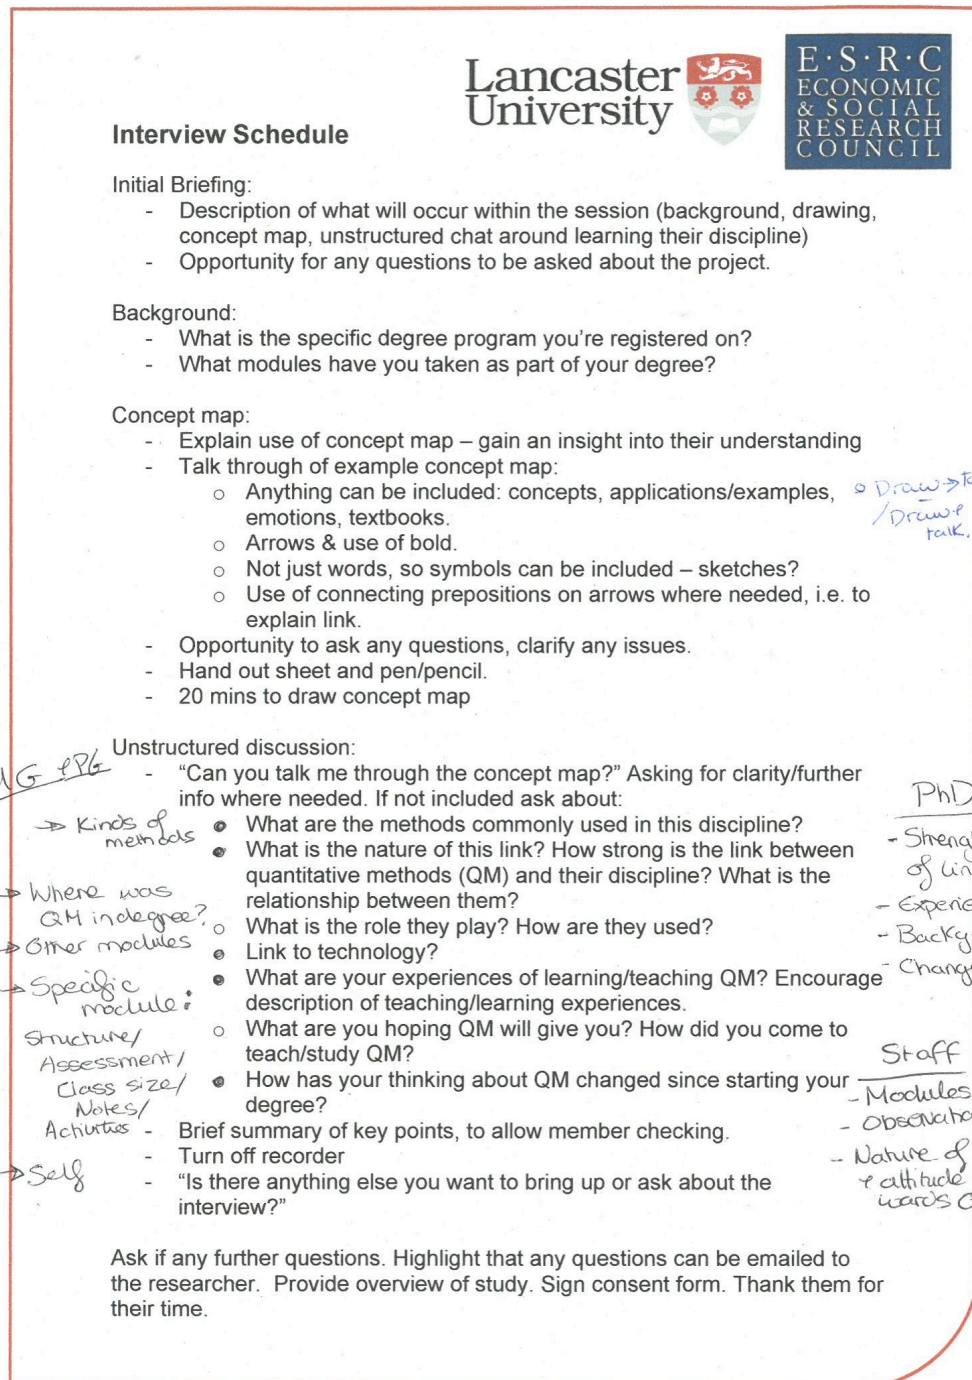 Lancaster
University
E·S·R·C
ECONOMIC
& SOCIAL
RESEARCH
COUNCIL
Interview Schedule
Initial Briefing:
- Description of what will occur within the session (background, drawing,
concept map, unstructured chat around learning their discipline)
- Opportunity for any questions to be asked about the project.
Background:
- What is the specific degree program you're registered on?
- What modules have you taken as part of your degree?
Concept map:
- Explain use of concept map – gain an insight into their understanding
- Talk through of example concept map:
○ Anything can be included: concepts, applications/examples,
emotions, textbooks.
○ Arrows & use of bold.
○ Not just words, so symbols can be included – sketches?
○ Use of connecting prepositions on arrows where needed, i.e. to
explain link.
○ Draw →
/Draw &
talk.
- Opportunity to ask any questions, clarify any issues.
- Hand out sheet and pen/pencil.
- 20 mins to draw concept map
Unstructured discussion:
- "Can you talk me through the concept map?" Asking for clarity/further
info where needed. If not included ask about:
● What are the methods commonly used in this discipline?
● What is the nature of this link? How strong is the link between
quantitative methods (QM) and their discipline? What is the
relationship between them?
○ What is the role they play? How are they used?
● Link to technology?
● What are your experiences of learning/teaching QM? Encourage
description of teaching/learning experiences.
○ What are you hoping QM will give you? How did you come to
teach/study QM?
● How has your thinking about QM changed since starting your
degree?
- Brief summary of key points, to allow member checking.
- Turn off recorder
- "Is there anything else you want to bring up or ask about the
interview?"
& PG
→ Kinds of
methods
→ Where was
QM in degree?
→ Other modules
→ Specific
module:
Structure/
Assessment/
Class size/
Notes/
Activities
→ Self
PhD
- Streng
of lin
- Experie
- Backg
- Chang
Staff
- Modules
- Observatio
- Nature of
& attitude
wards
Ask if any further questions. Highlight that any questions can be emailed to
the researcher.  Provide overview of study. Sign consent form. Thank them for
their time.